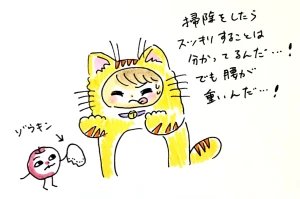 掃除をしたら
スッキリすることは
分かってるんだ…!
でも腰が
重いんだ…!
ゾウキン